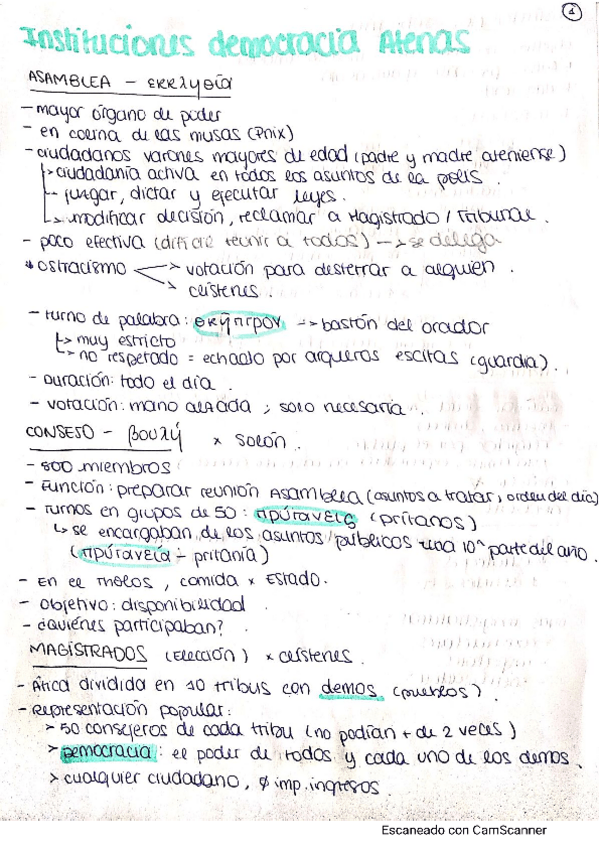 1
Instituciones democracia Atenas
ASAMBLEA - εκκλησία
- mayor órgano de poder
- en colina de las musas (Pnix)
- ciudadanos varones mayores de edad (padre y madre ateniense)
> ciudadanía activa en todos los asuntos de la polis.
- juzgar, dictar y ejecutar leyes.
> modificar decisión, reclamar a Magistrado / Tribunal.
- poco efectiva (difícil reunir a todos) --> se delega
* ostracismo > votación para desterrar a alguien.
> clístenes.
- turno de palabra: σκῆπτρον --> bastón del orador
> muy estricto
> no respetado = echado por arqueros escitas (guardia).
- Duración: todo el día.
- votación: mano alzada; solo necesaria.
CONSEJO - βουλή x Solón.
- 500 miembros
- Función: preparar reunión Asamblea (asuntos a tratar, orden del día)
- turnos en grupos de 50: πρύτανεις (prítanos)
↳ se encargaban de los asuntos públicos una 10ª parte del año.
(πρύτανεία - pritanía)
- En el tholos, comida x Estado.
- objetivo: disponibilidad
- ¿quiénes participaban?
MAGISTRADOS (Elección) x clístenes.
- Ática dividida en 10 tribus con demos (pueblos).
- Representación popular:
> 50 consejeros de cada tribu (no podían + de 2 veces)
> Democracia: el poder de todos y cada uno de los demos.
> cualquier ciudadano, ∅ imp. ingresos.
Escaneado con CamScanner